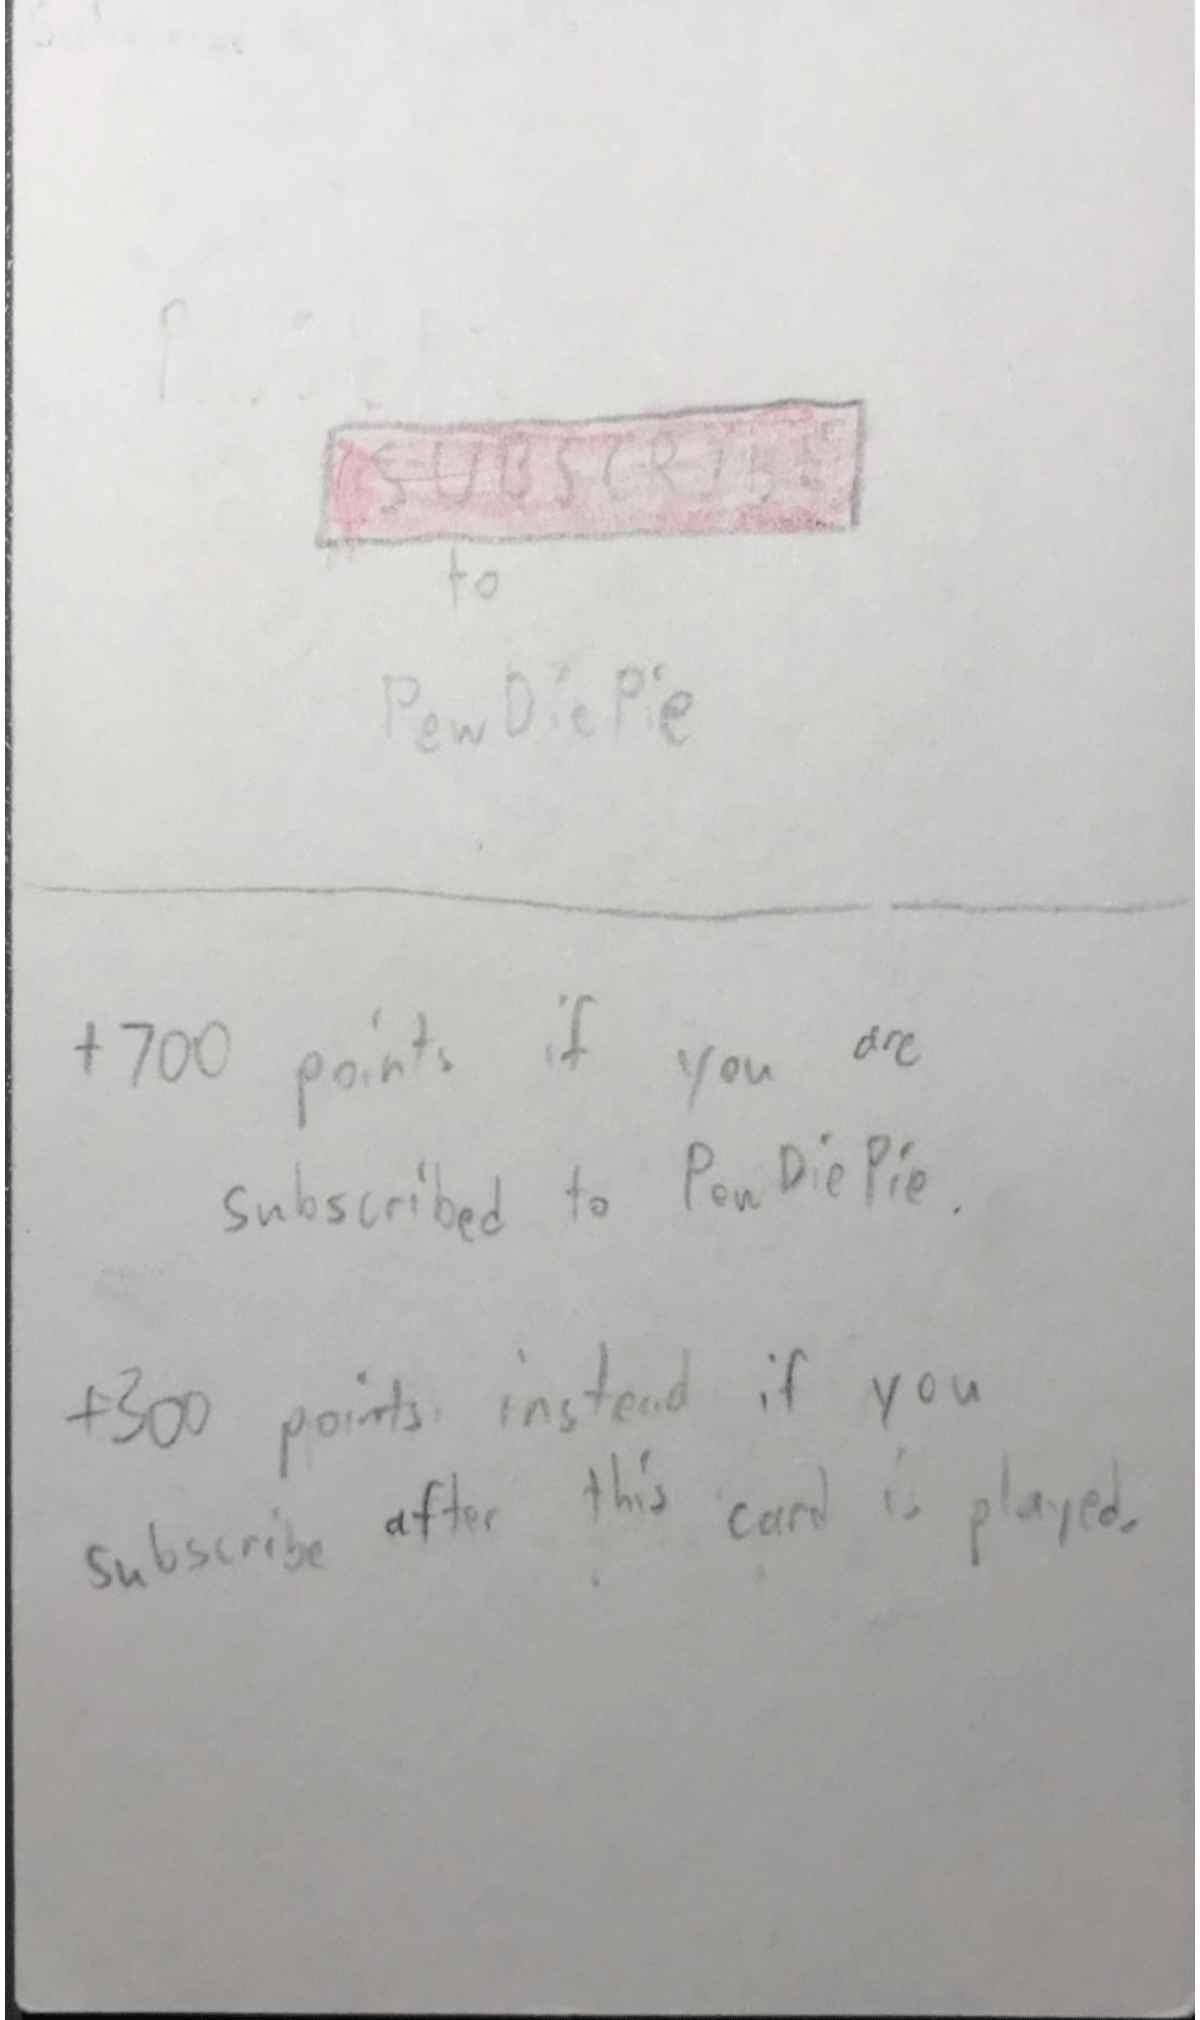 SUBSCRIBE
to
PewDiePie
+700 points if you are
subscribed to PewDiePie.
+300 points instead if you
subscribe after this card is played.